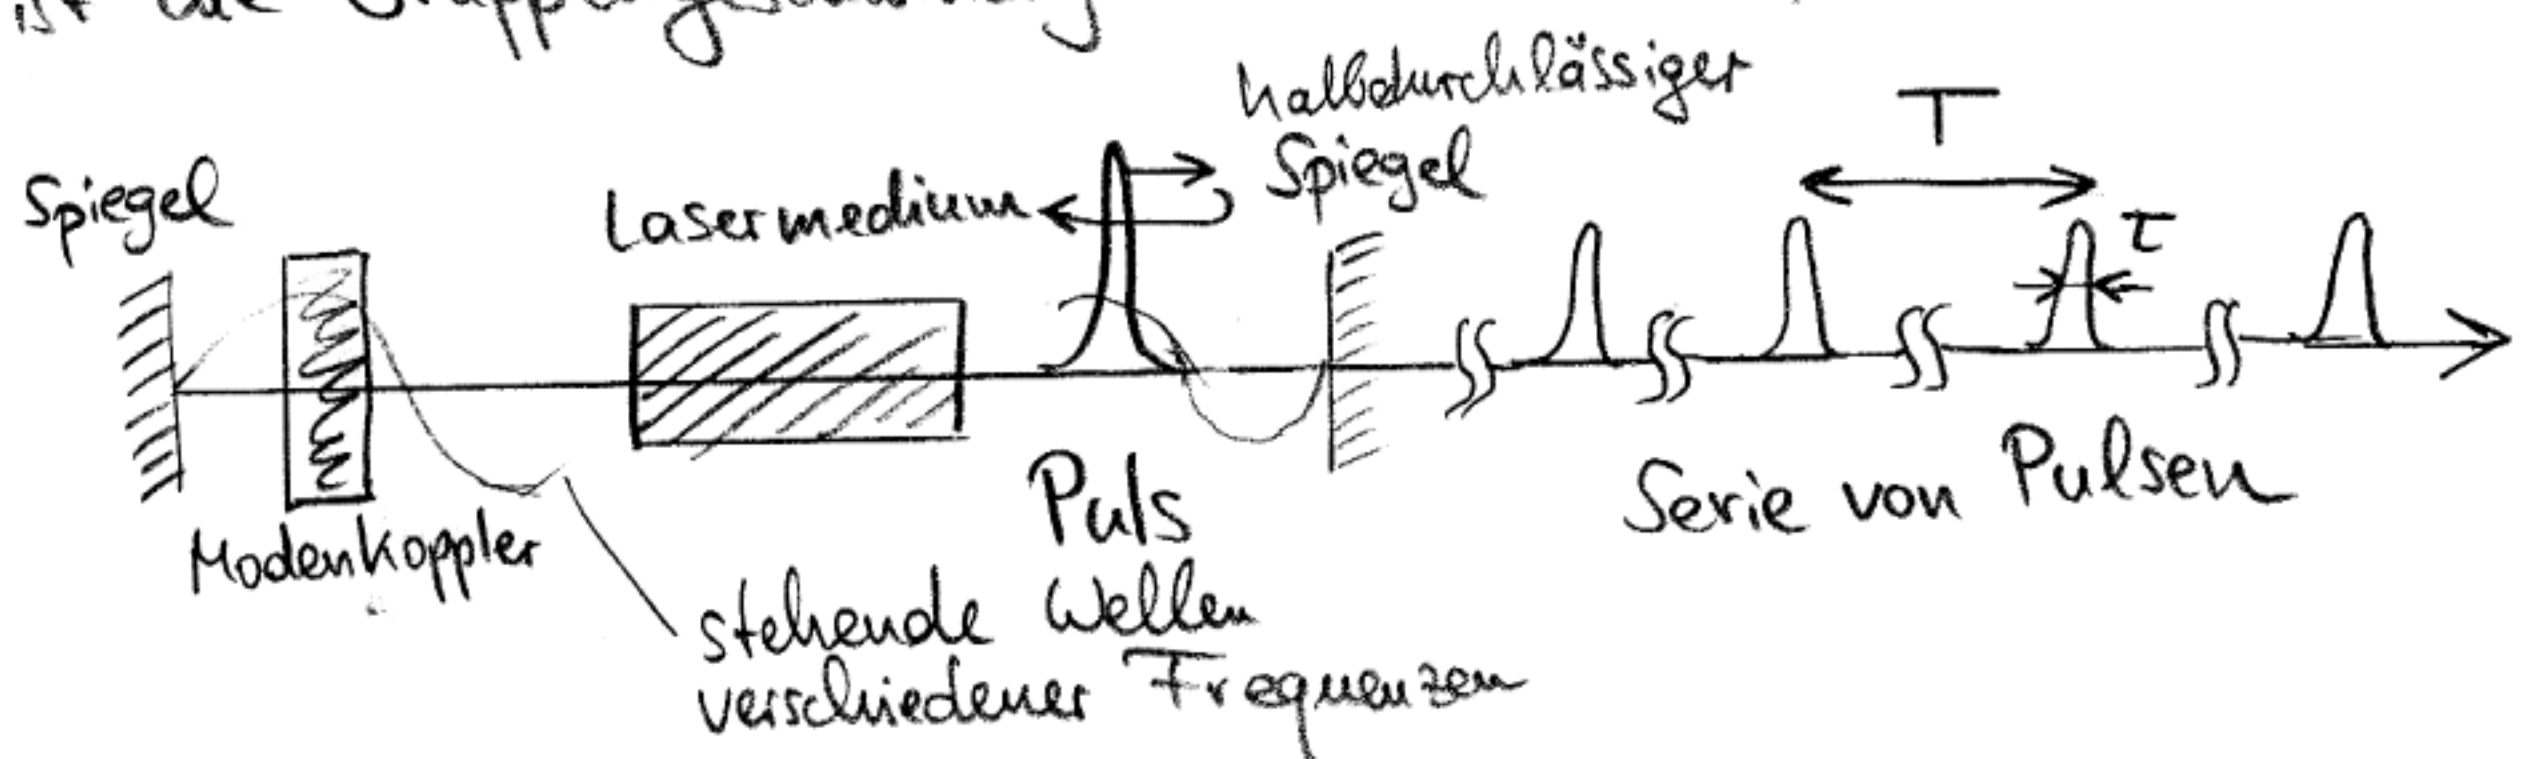 ist die
halbdurchlässiger
Spiegel
T
Spiegel
Lasermedium
τ
Modenkoppler
Puls
Serie von Pulsen
stehende Wellen
verschiedener Frequenzen